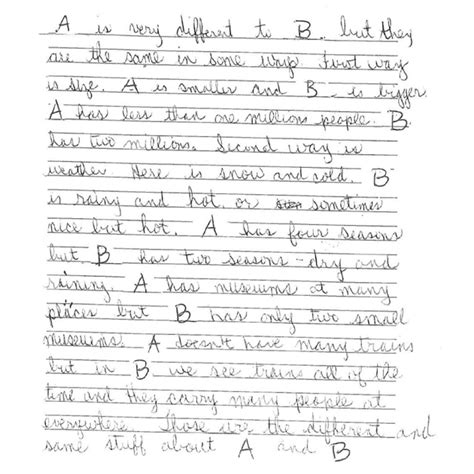 A is very different to B. but they
are the same in some ways. First way
is size. A is smaller and B is bigger.
A has less than one millions people. B
has two millions. Second way is
weather. Here is snow and cold. B
is rainy and hot, or sometimes
nice but hot. A has four seasons
but B has two seasons - dry and
raining. A has museums at many
places but B has only two small
museums. A doesn't have many trains
but in B we see trains all of the
time and they carry many people at
everywhere. Those are the different and
same stuff about A and B